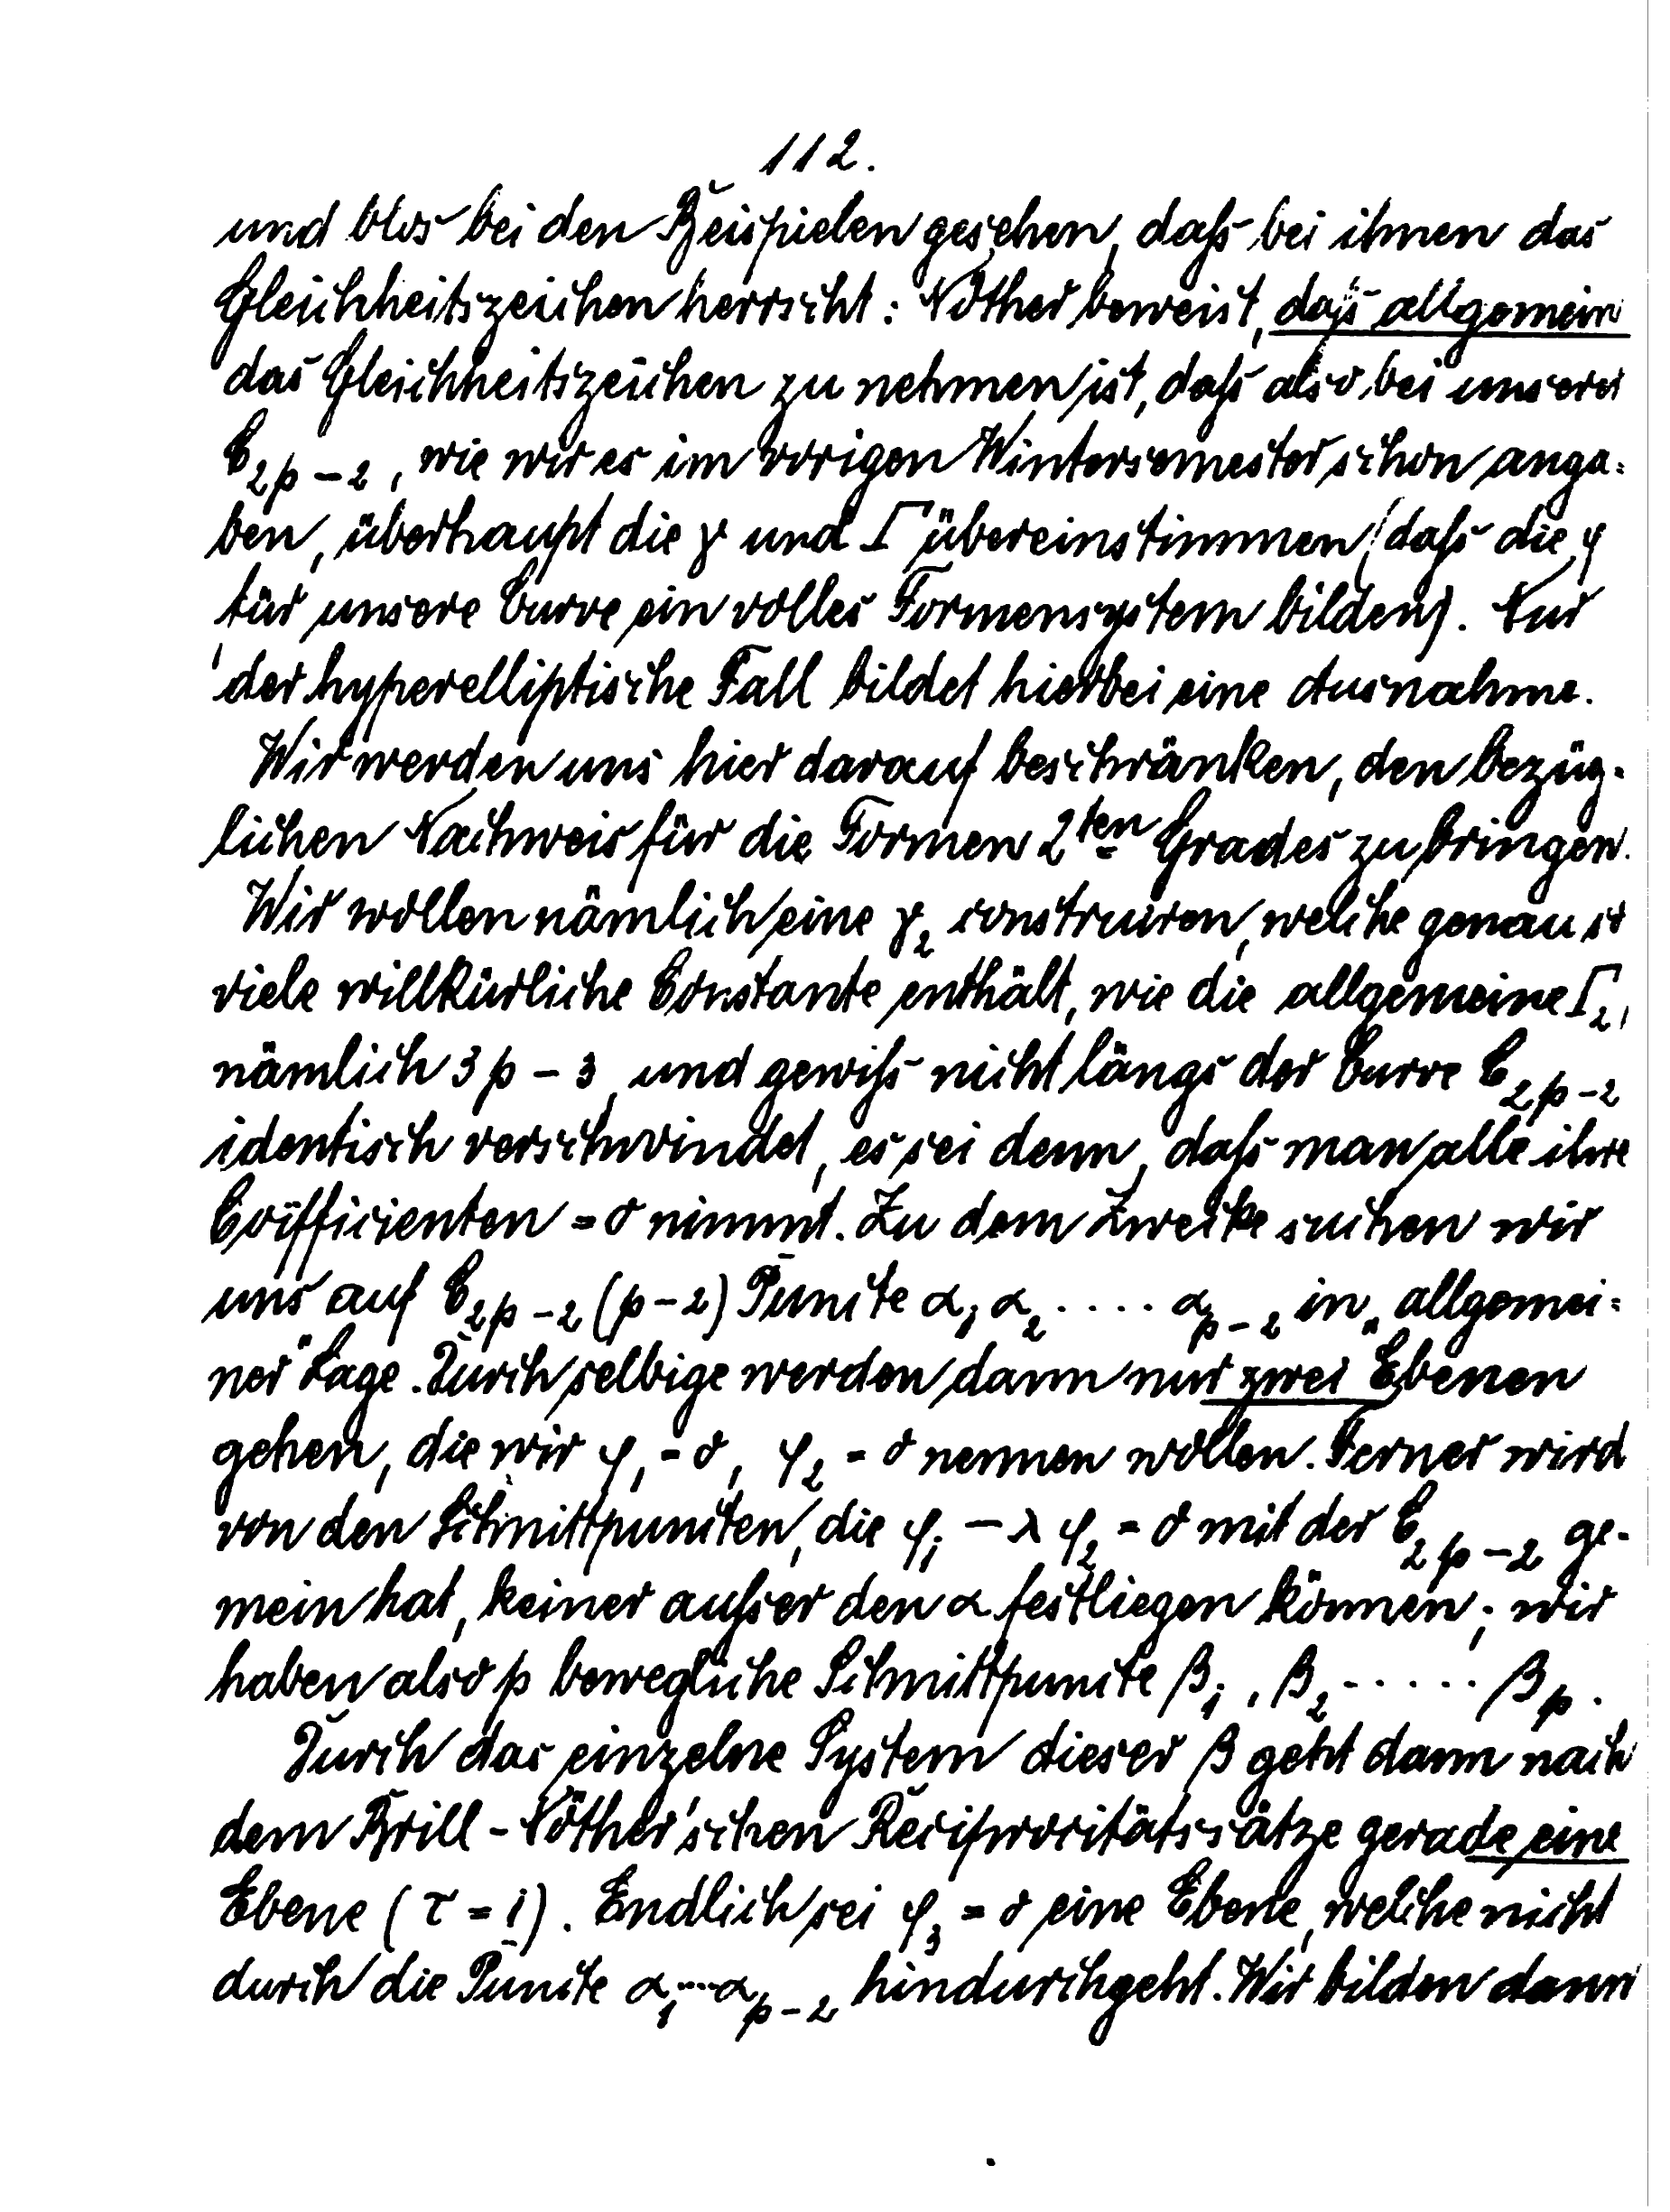 112.
und blos bei den Beispielen gesehen, dass bei ihnen das
Gleichheitszeichen herrscht: Nöther beweist, dass allgemein
das Gleichheitszeichen zu nehmen ist, dass also bei unserer
C_{2p-2}, wie wir es im vorigen Wintersemester schon anga-
ben, überhaupt die γ und Γ übereinstimmen (dass die φ
für unsere Curve ein volles Formensystem bilden). Nur
der hyperelliptische Fall bildet hierbei eine Ausnahme.
Wir werden uns hier darauf beschränken, den bezüg-
lichen Nachweis für die Formen 2ten Grades zu bringen.
Wir wollen nämlich eine γ_2 construiren, welche genau so
viele willkürliche Constante enthält, wie die allgemeine Γ_2,
nämlich 3p-3, und gewiss nicht längs der Curve C_{2p-2}
identisch verschwindet, es sei denn, dass man alle ihre
Coëfficienten = 0 nimmt. Zu dem Zwecke suchen wir
uns auf C_{2p-2} (p-2) Puncte α_1 α_2 .... α_{p-2} in „allgemei-
ner" Lage. Durch selbige werden dann nur zwei Ebenen
gehen, die wir φ_1 = 0, φ_2 = 0 nennen wollen. Ferner wird
von den Schnittpuncten, die φ_1 - λ φ_2 = 0 mit der C_{2p-2} ge-
mein hat, keiner ausser den α festliegen können; wir
haben also p bewegliche Schnittpuncte β_1, β_2 ..... β_p.
Durch das einzelne System dieser β geht dann nach
dem Brill-Nöther'schen Reciprocitätssatze gerade eine
Ebene (τ = 1). Endlich sei φ_3 = 0 eine Ebene, welche nicht
durch die Puncte α_1 ... α_{p-2} hindurchgeht. Wir bilden dann